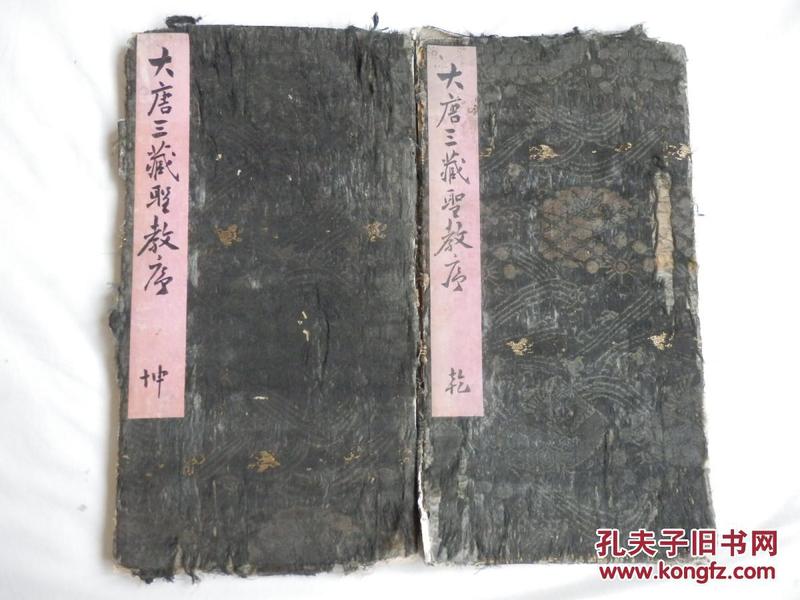 大唐三藏聖教序
乾
大唐三藏聖教序
坤
孔夫子旧书网
www.kongfz.com